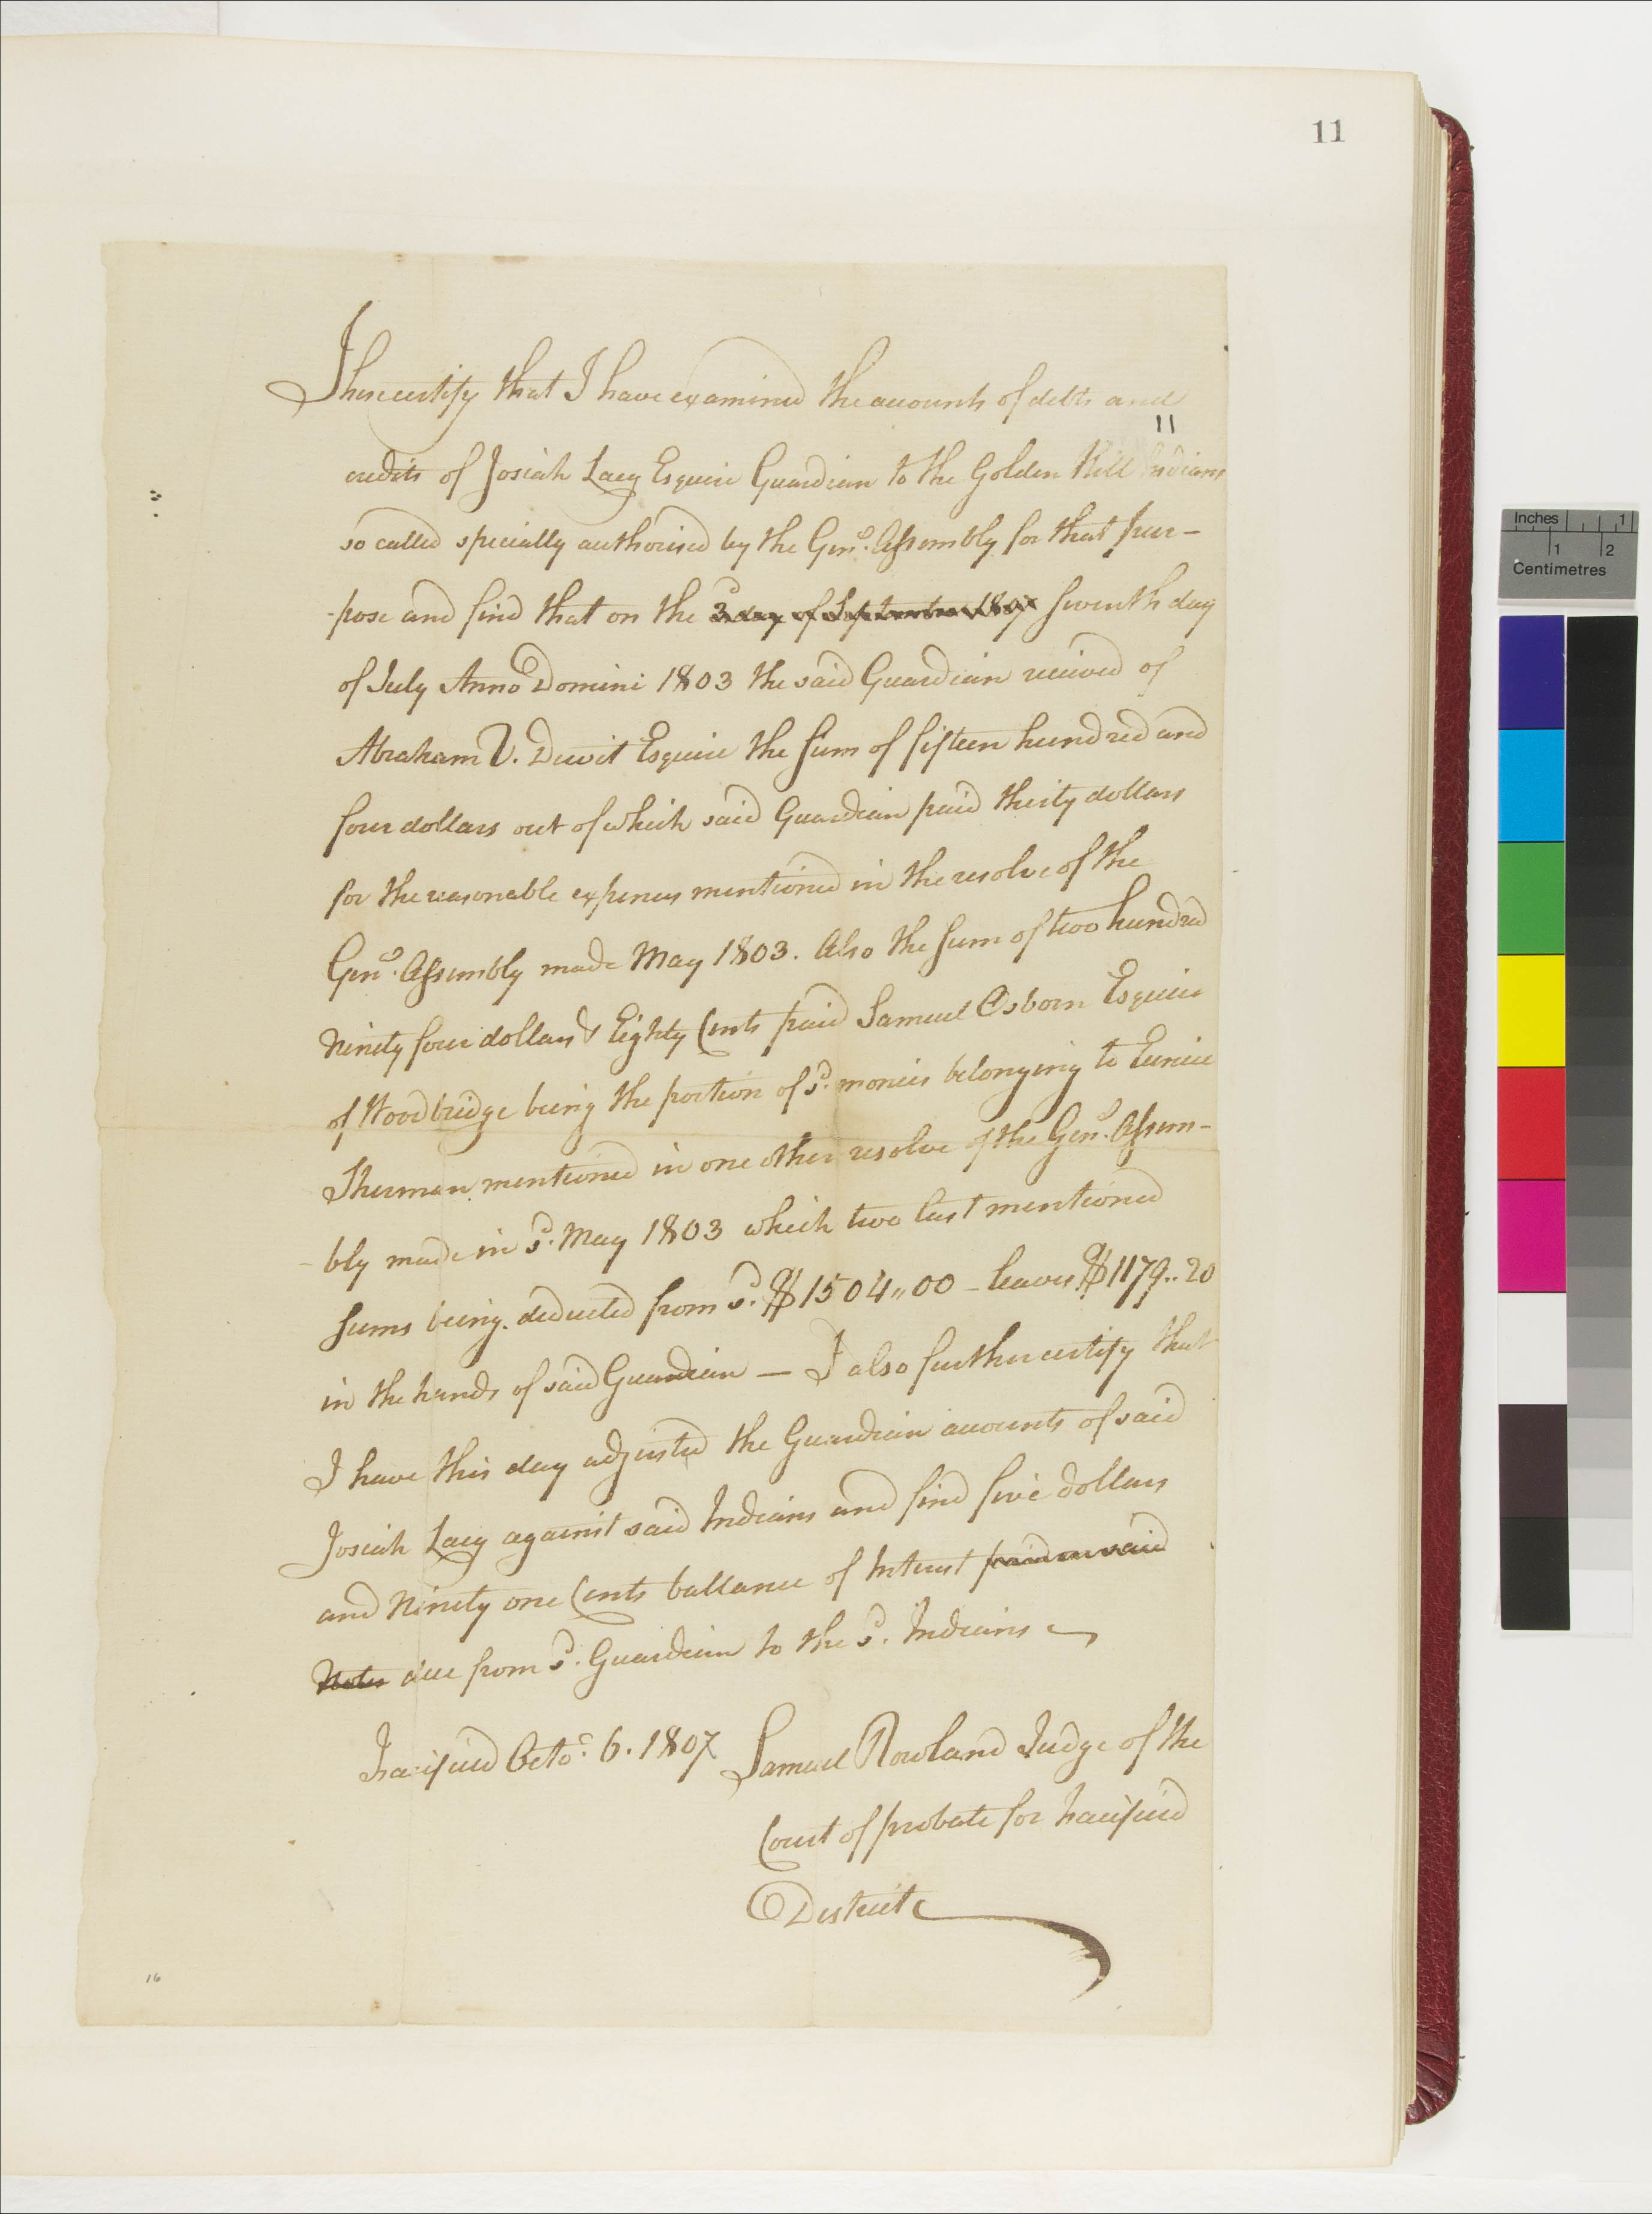 11
I here certify that I have examined the accounts of debts and
11
credits of Josiah Lacy Esquire Guardian to the Golden Hill Indians
so called specially authorised by the Genl. Assembly for that pur-
-pose and find that on the 3d day of September 1807 seventh day
of July Anno Domini 1803 the said Guardian received of
Abraham V. Dewit Esquire the Sum of fifteen hundred and
four dollars out of which said Guardian paid thirty dollars
for the reasonable expences mentioned in the resolve of the
Genl. Assembly made May 1803. Also the Sum of two hundred
Ninety four dollars & Eighty Cents paid Samuel Osborn Esquire
of Woodbridge being the portion of sd. monies belonging to Eunice
Sherman mentioned in one other resolve of the Genl. Assem-
-bly made in sd. May 1803 which two last mentioned
Sums being deducted from sd. $1504,,00 - leaves $1179..20
in the hands of said Guardian — I also further certify that
I have this day adjusted the Guardian accounts of said
Josiah Lacy against said Indians and find five dollars
and Ninety one Cents ballance of Interest paid on said
Notes due from sd. Guardian to the sd. Indians
Fairfield Octor. 6. 1807 Samuel Rowland Judge of the
Court of probate for Fairfield
District
16
Inches 1
1 2
Centimetres